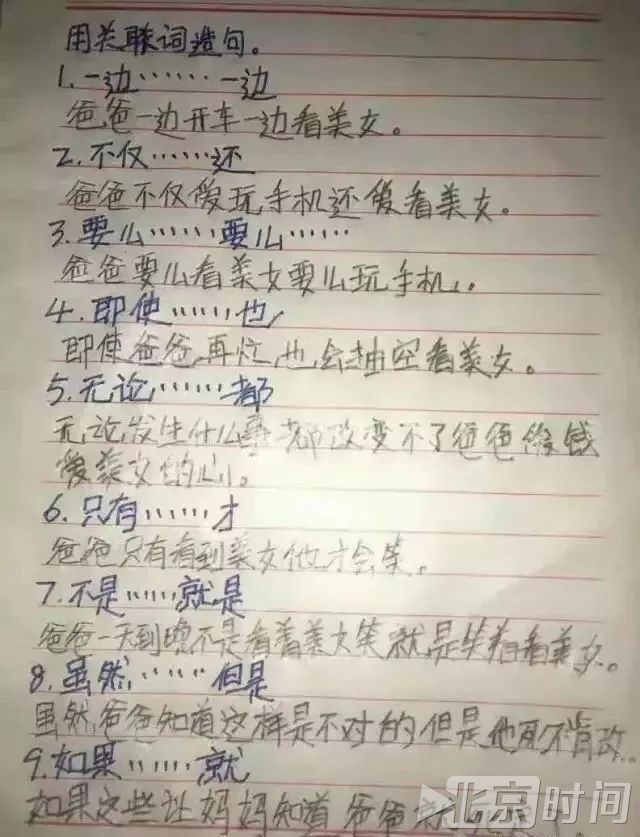 用关联词造句。
1.一边……一边
爸爸一边开车一边看美女。
2.不仅……还
爸爸不仅爱玩手机还爱看美女。
3.要么……要么……
爸爸要么看美女要么玩手机。
4.即使……也
即使爸爸再忙也会抽空看美女。
5.无论……都
无论发生什么事都改变不了爸爸爱钱
爱美女的心。
6.只有……才
爸爸只有看到美女他才会笑。
7.不是……就是
爸爸一天到晚不是看着美女笑就是笑着看美女。
8.虽然……但是
虽然爸爸知道这样是不对的但是他死不肯改。
9.如果……就
如果这些让妈妈知道爸爸就
北京时间